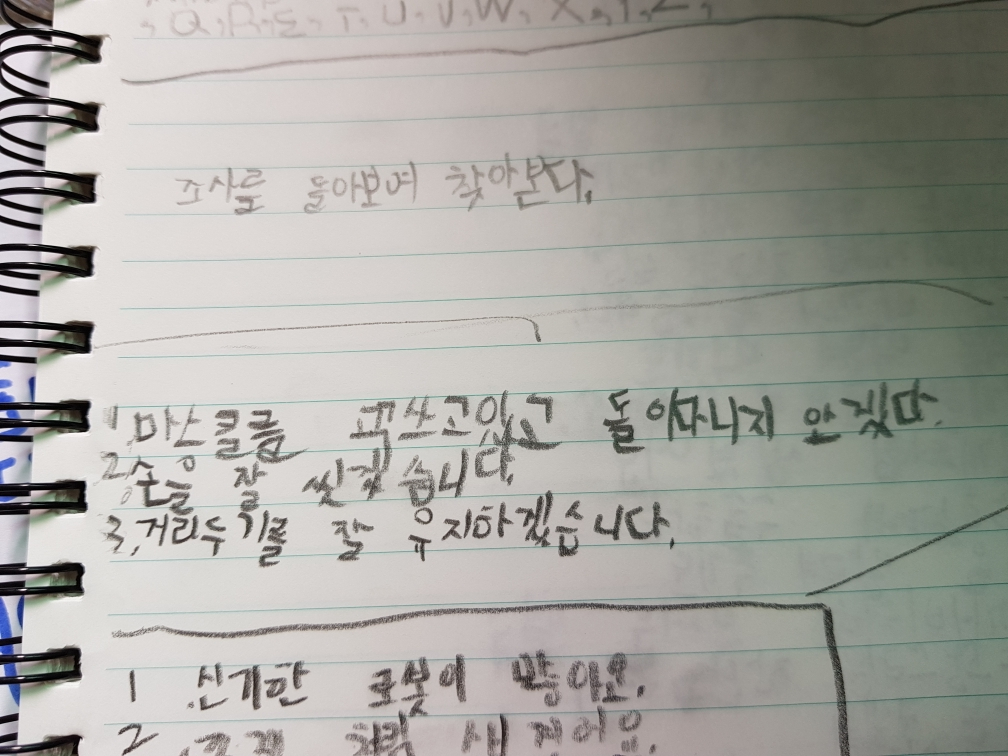 , Q, R, S, T, U, V, W, X, Y, Z,
조사를 돌아보며 찾아본다.
1. 마스클를 꼭쓰고있고 돌아다니지 안겠다.
2. 손을 잘 씻겟습니다.
3. 거리두기를 잘 유지하겠습니다.
1 신기한 로봇이 많아요.
2